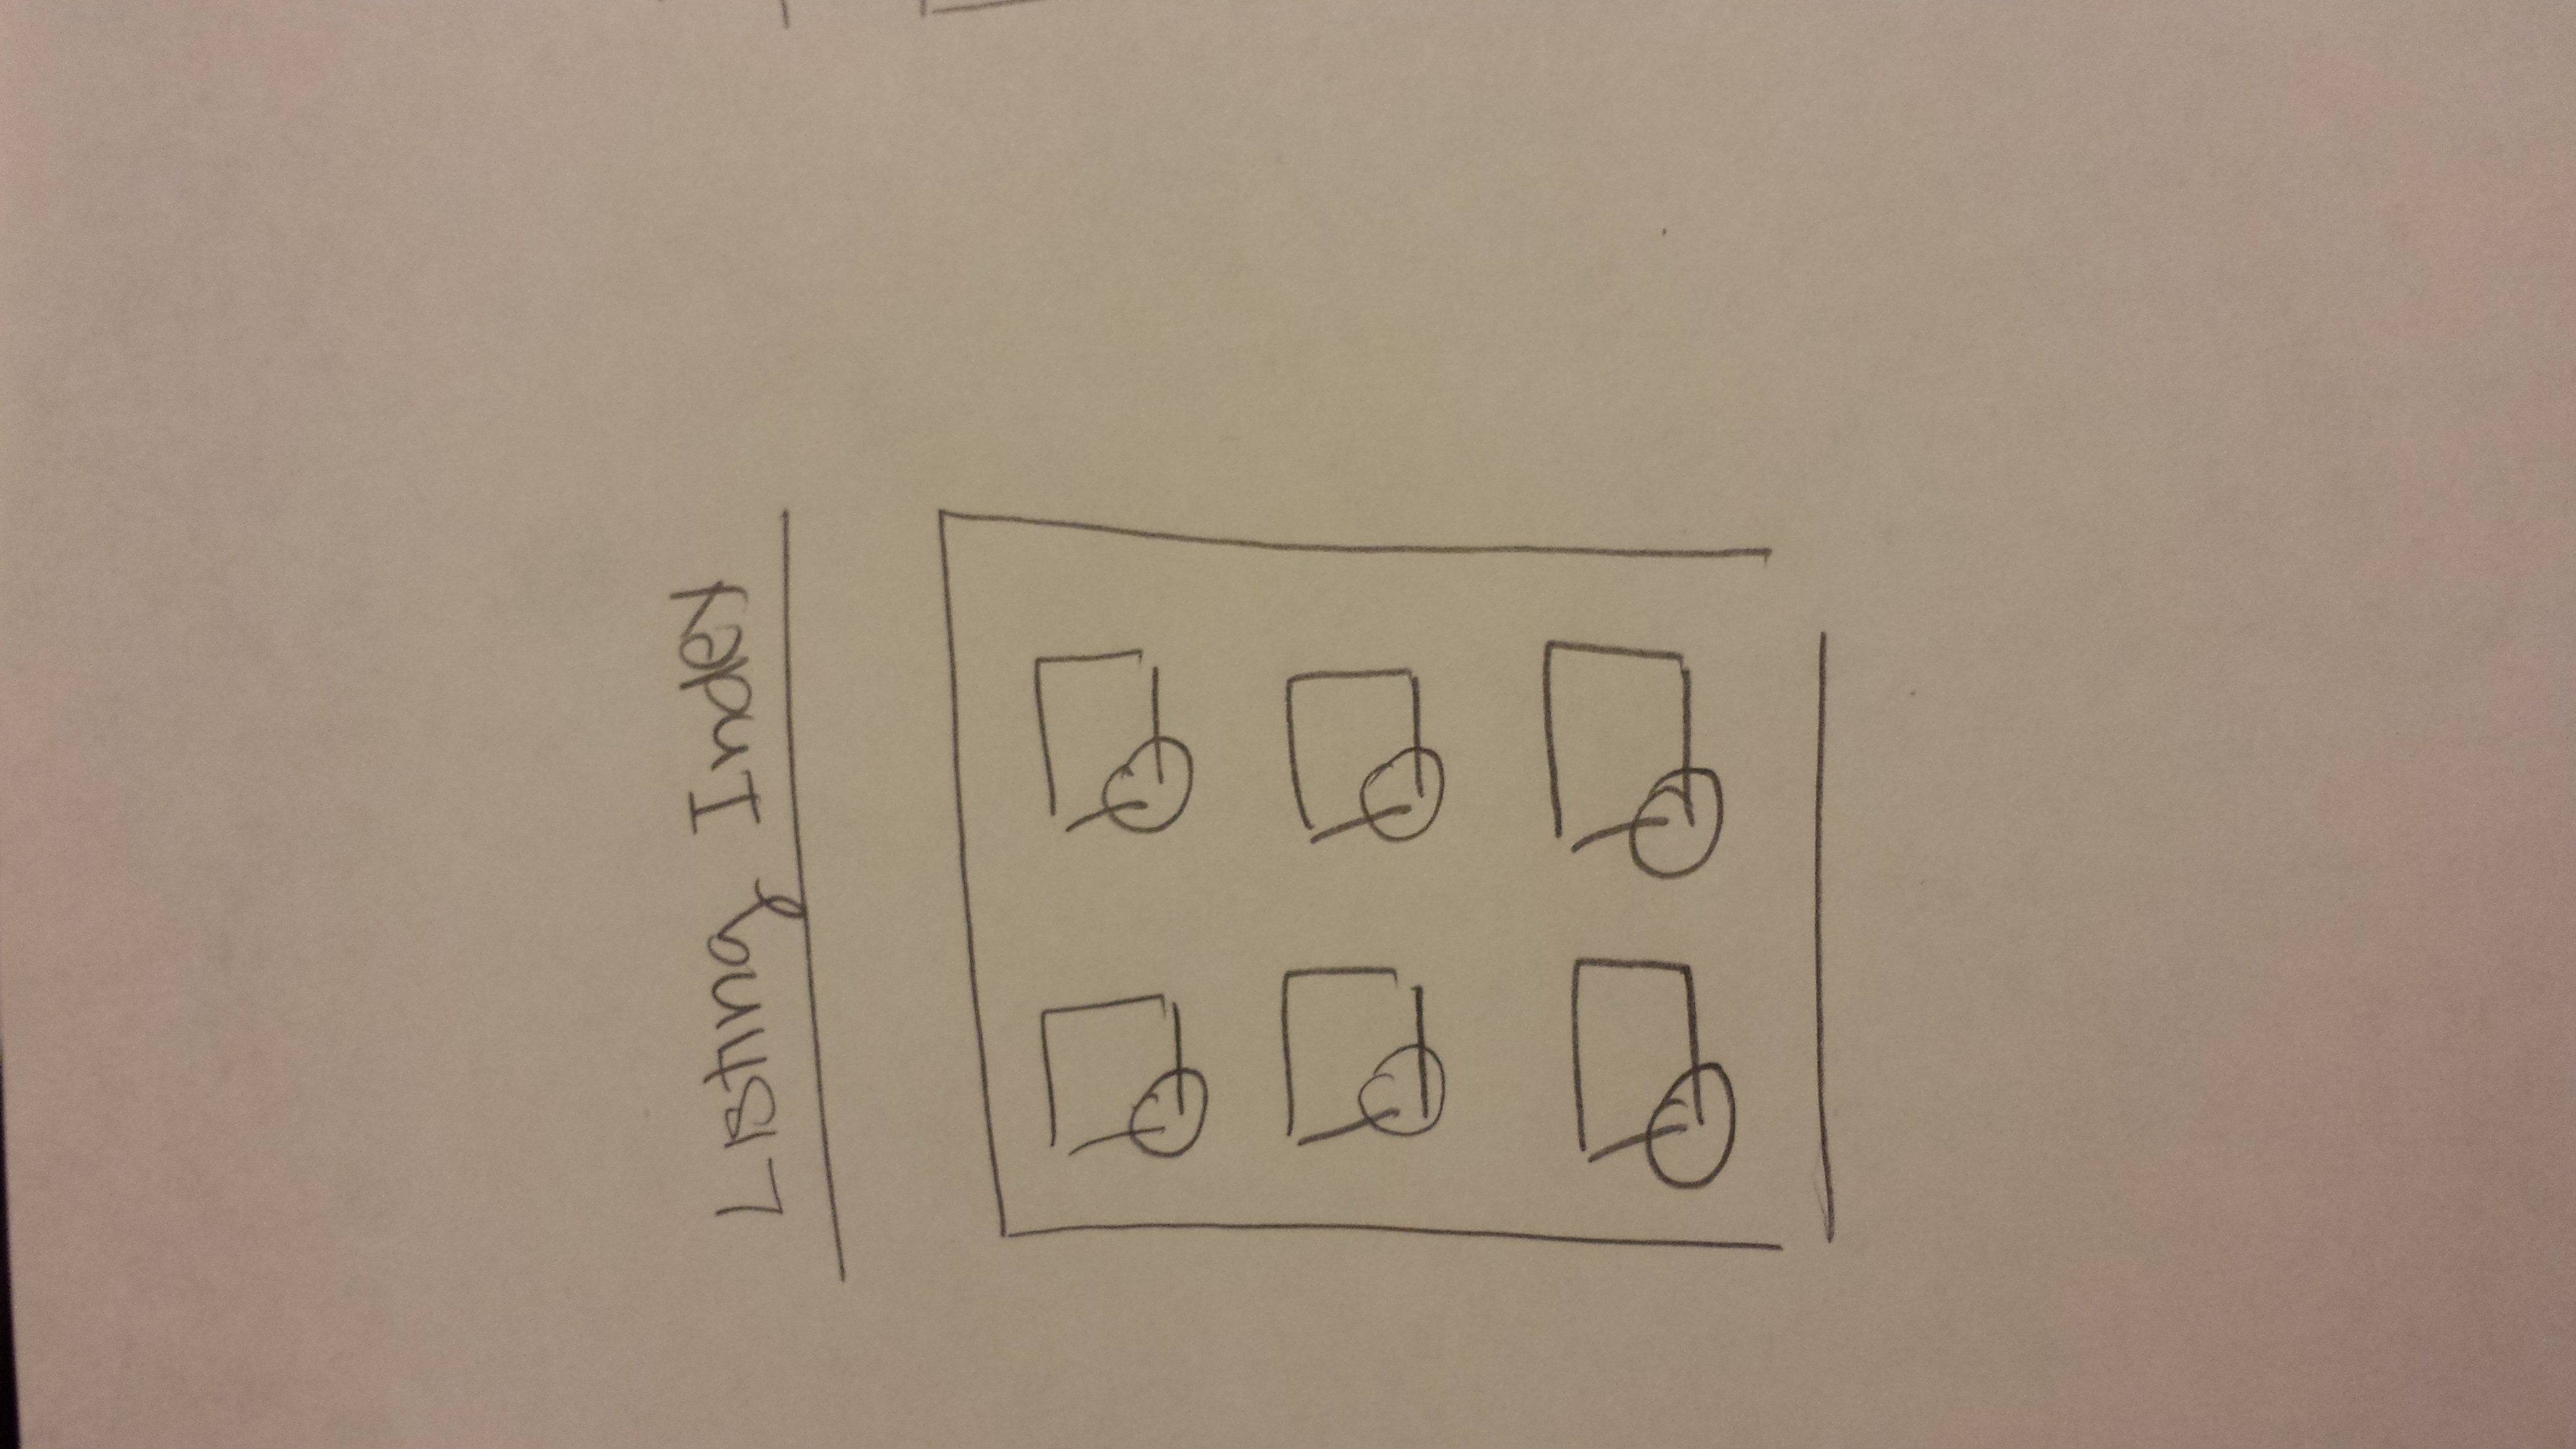 Listing Index